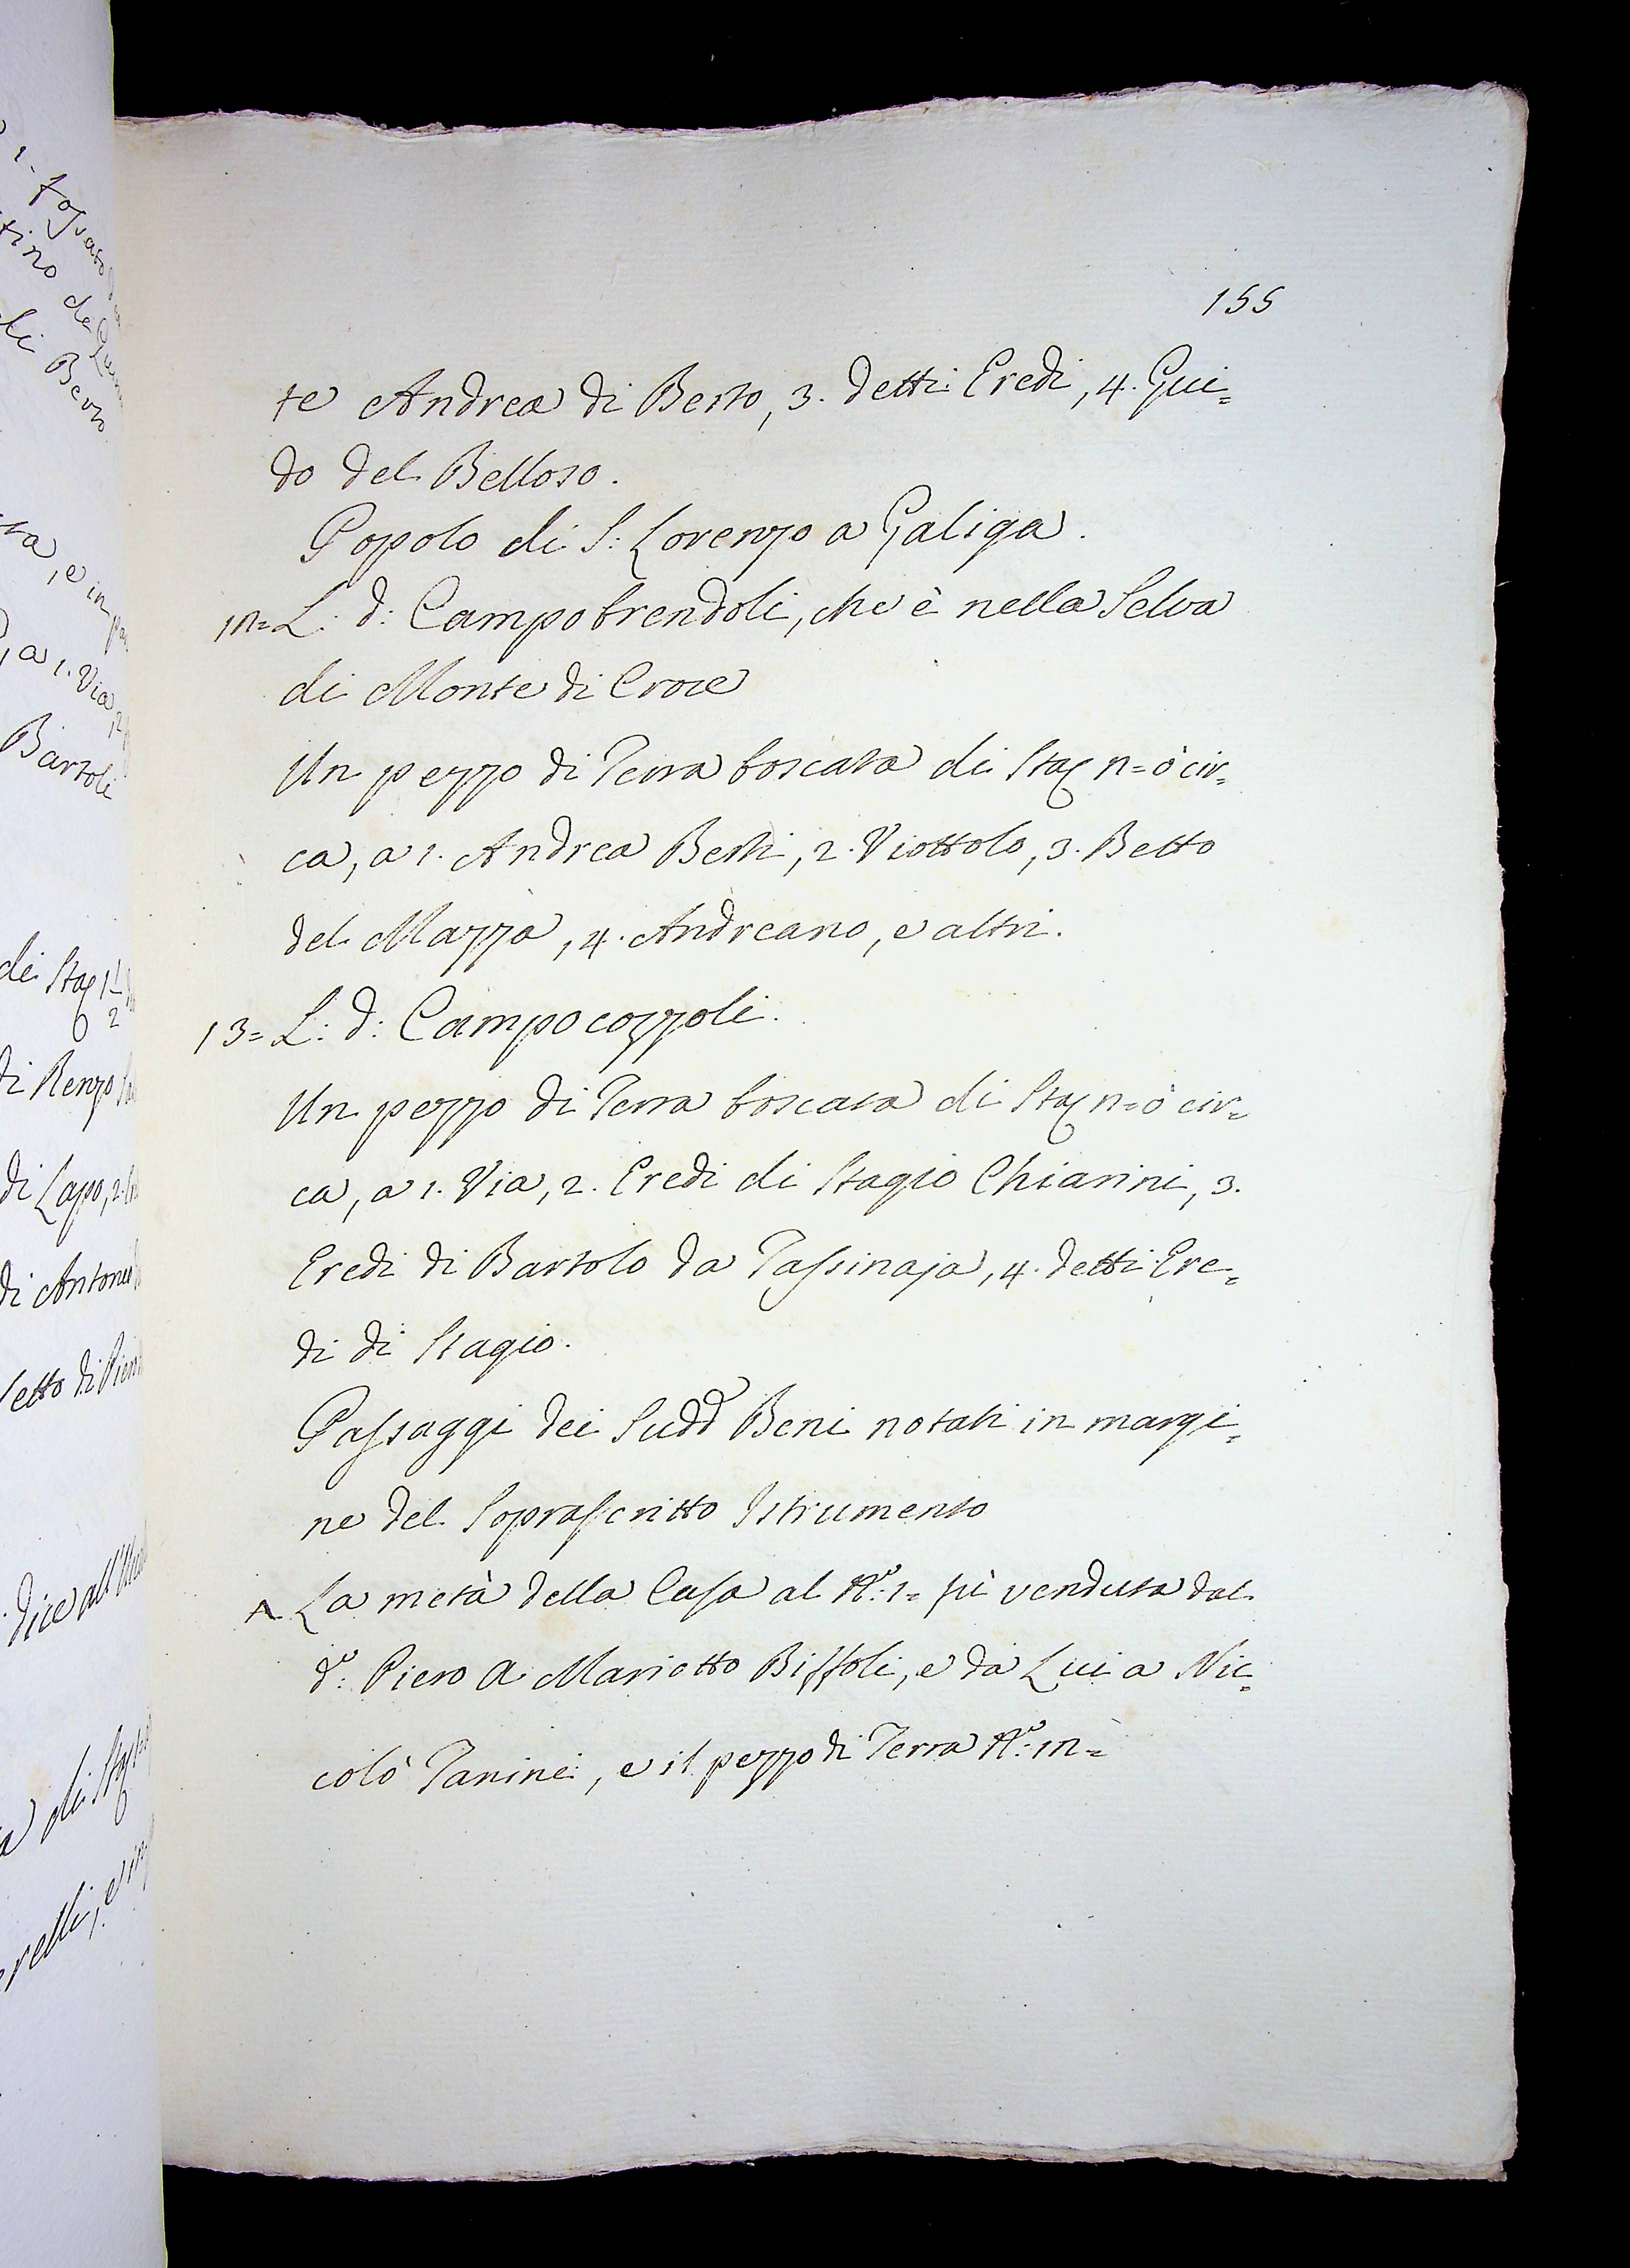 155
te Andrea di Berto, 3. detti Eredi, 4. Gui=
do del Belloso.
Popolo di S: Lorenzo a Galiga.
12= L: d: Campobrendoli, che è nella Selva
di Monte di Croce
Un pezzo di Terra boscata di Sta n=o cir=
ca, a 1. Andrea Berti, 2. Viottolo, 3. Betto
del Mazza, 4. Andreano, e altri.
13= L: d: Campocozzoli.
Un pezzo di Terra boscata di Sta n=o cir=
ca, a 1. Via, 2. Eredi di Stagio Chiarini, 3.
Eredi di Bartolo da Tassinaja, 4. detti Ere=
di di Stagio.
Passaggi dei Sudd Beni notati in margi=
ne del Soprascritto Istrumento
A La metà della Casa al N.º 1= fù venduta dal
d.º Piero a Mariotto Biffoli, e da Lui a Nic=
colò Tanini, e il pezzo di Terra N.º 12=
di Berto
Bartoli
di Renzo
di Lapo, 2.
di Antonio